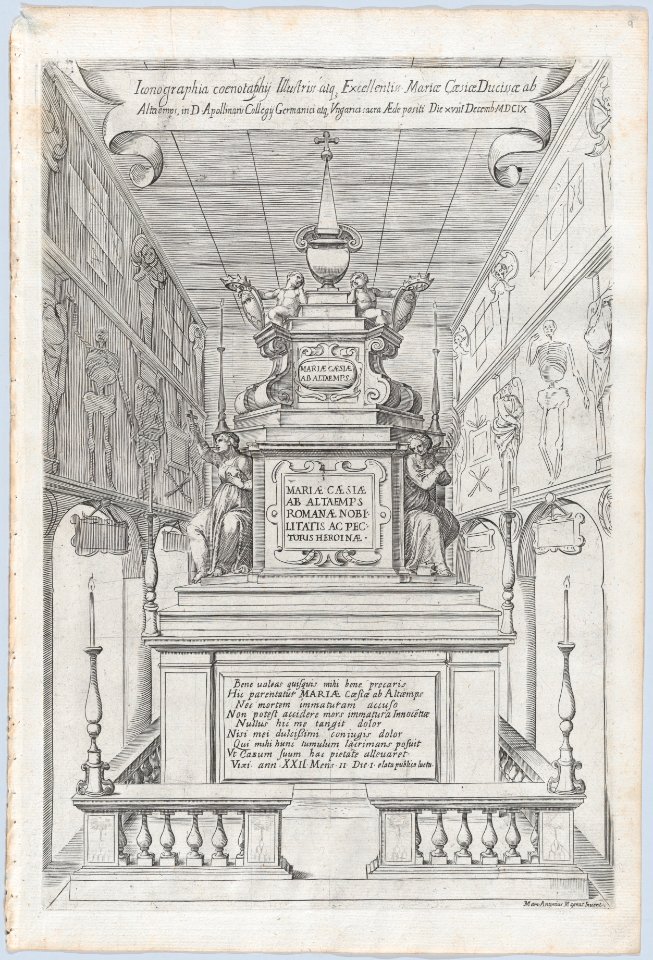 Iconographia coenotaphij Illustris atq, Excellentis Mariæ Cæsiæ Ducissæ ab
Altaemps, in D Apollinaris Collegij Germanici atq, Vngarici sacra Æde positi Die xviii Decemb MDCIX
MARIÆ CÆSIÆ
AB ALTAEMPS
MARIÆ CÆSIÆ
AB ALTAEMPS
ROMANÆ NOBI-
LITATIS AC PEC-
TORIS HEROINÆ.
Bene valeas quisquis mihi bene precaris
Hic parentatur MARIÆ Cæsiæ ab Altæmps
Nec mortem immaturam accuso
Non potest accidere mors immatura Innocẽtiæ
Nullus hic me tangit dolor
Nisi mei dulcissimi coniugis dolor
Qui mihi hunc tumulum lacrimans posuit
Vt Casum suum hac pietate alleuaret
Vixi ann XXII Mens II Die I elata publico luctu